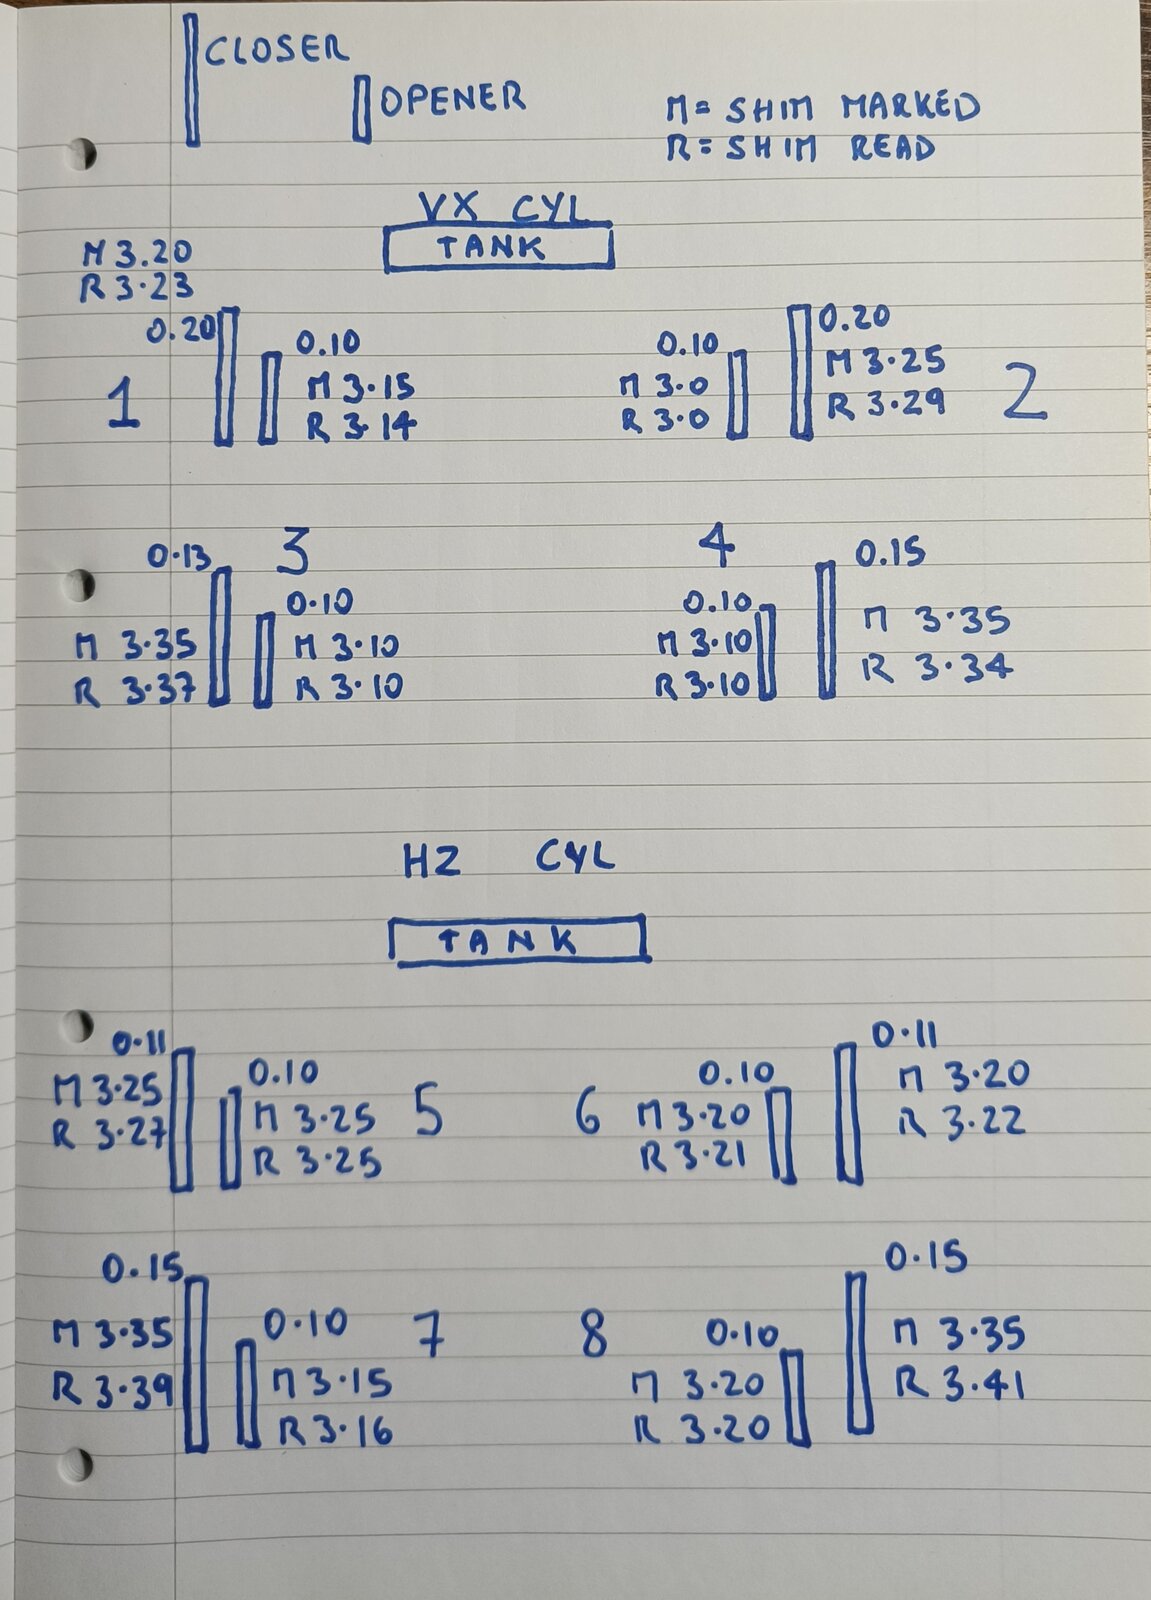 CLOSER
OPENER
M = SHIM MARKED
R = SHIM READ
VX CYL
TANK
M 3.20
R 3.23
0.20
0.10
M 3.15
R 3.14
1
0.10
M 3.0
R 3.0
0.20
M 3.25
R 3.29
2
0.13
3
M 3.35
R 3.37
0.10
M 3.10
R 3.10
4
0.10
M 3.10
R 3.10
0.15
M 3.35
R 3.34
HZ CYL
TANK
0.11
M 3.25
R 3.27
0.10
M 3.25
R 3.25
5
6
0.10
M 3.20
R 3.21
0.11
M 3.20
R 3.22
0.15
M 3.35
R 3.39
0.10
M 3.15
R 3.16
7
8
0.10
M 3.20
R 3.20
0.15
M 3.35
R 3.41